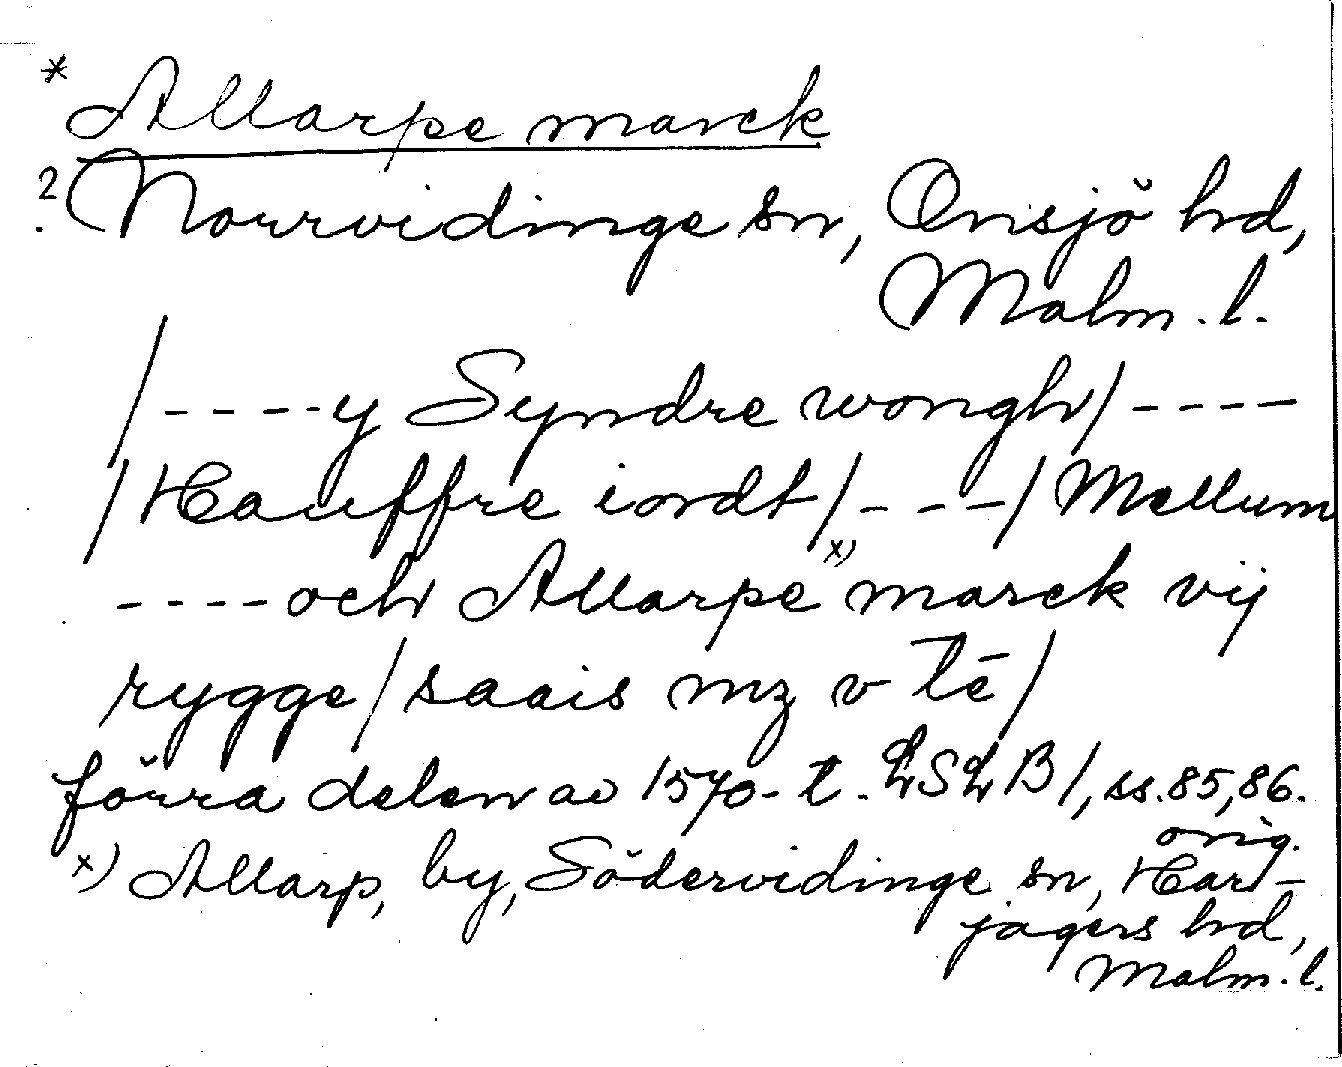 * Allarpe marck
?. Norrvidinge sn, Onsjö hd,
Malm. l.
/----y Syndre wongh/----
/Hauffre iordt/---/Mellum
----och Allarpe x) marck vij
rygge/saais mz v tē/
förra delen av 1570-t. LSLB/, ss. 85, 86.
orig.
x) Allarp, by, Södervidinge sn, Har-
jagers hd,
Malm. l.